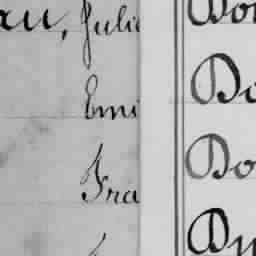 au, Julie
Emi
Fra
Don
Do
Do
Dy